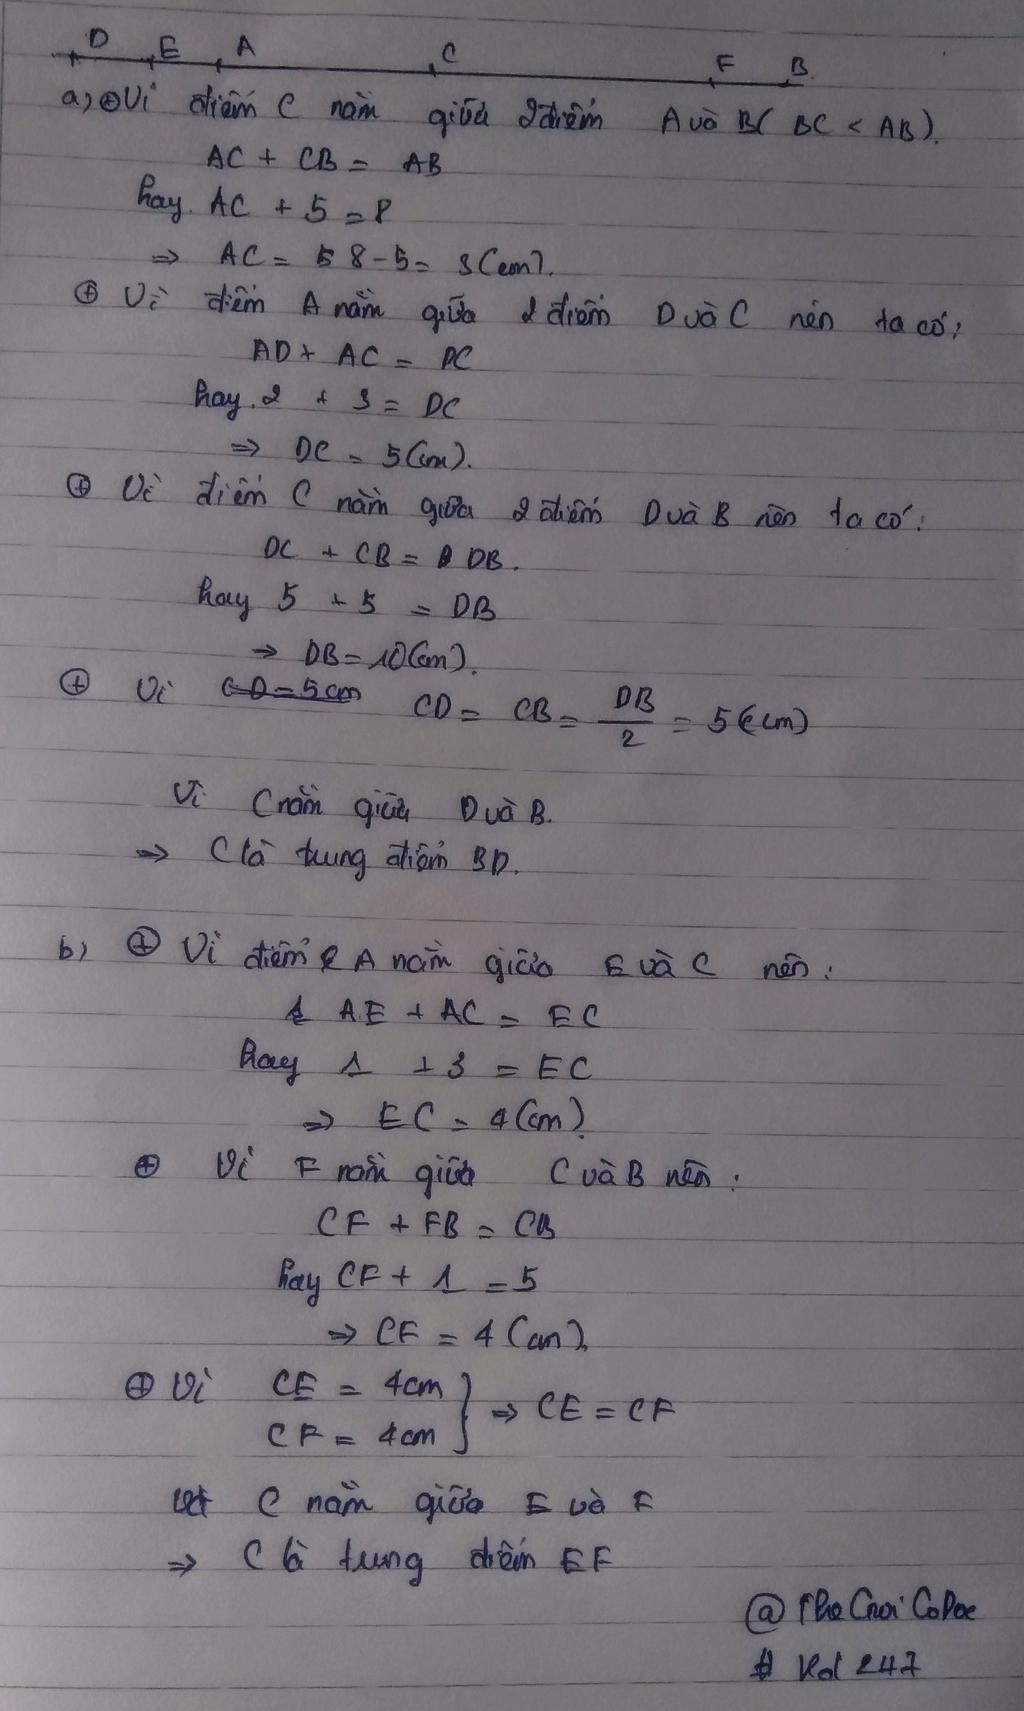 D E A C F B
a) ⊕ Vì điểm C nằm giữa 2 điểm A và B ( BC < AB ).
AC + CB = AB
hay AC + 5 = 8
⇒ AC = 8 - 5 = 3 (cm).
⊕ Vì điểm A nằm giữa 2 điểm D và C nên ta có:
AD + AC = DC
hay 2 + 3 = DC
⇒ DC = 5 (cm).
⊕ Vì điểm C nằm giữa 2 điểm D và B nên ta có:
DC + CB = DB.
hay 5 + 5 = DB
⇒ DB = 10 (cm).
⊕ Vì CD = 5cm CD = CB = DB/2 = 5 (cm)
Vì C nằm giữa D và B.
⇒ C là trung điểm BD.
b) ⊕ Vì điểm A nằm giữa E và C nên:
AE + AC = EC
hay 1 + 3 = EC
⇒ EC = 4 (cm).
⊕ Vì F nằm giữa C và B nên:
CF + FB = CB
hay CF + 1 = 5
⇒ CF = 4 (cm).
⊕ Vì CE = 4cm
CF = 4cm } ⇒ CE = CF
C nằm giữa E và F
⇒ C là trung điểm EF
@
# 247